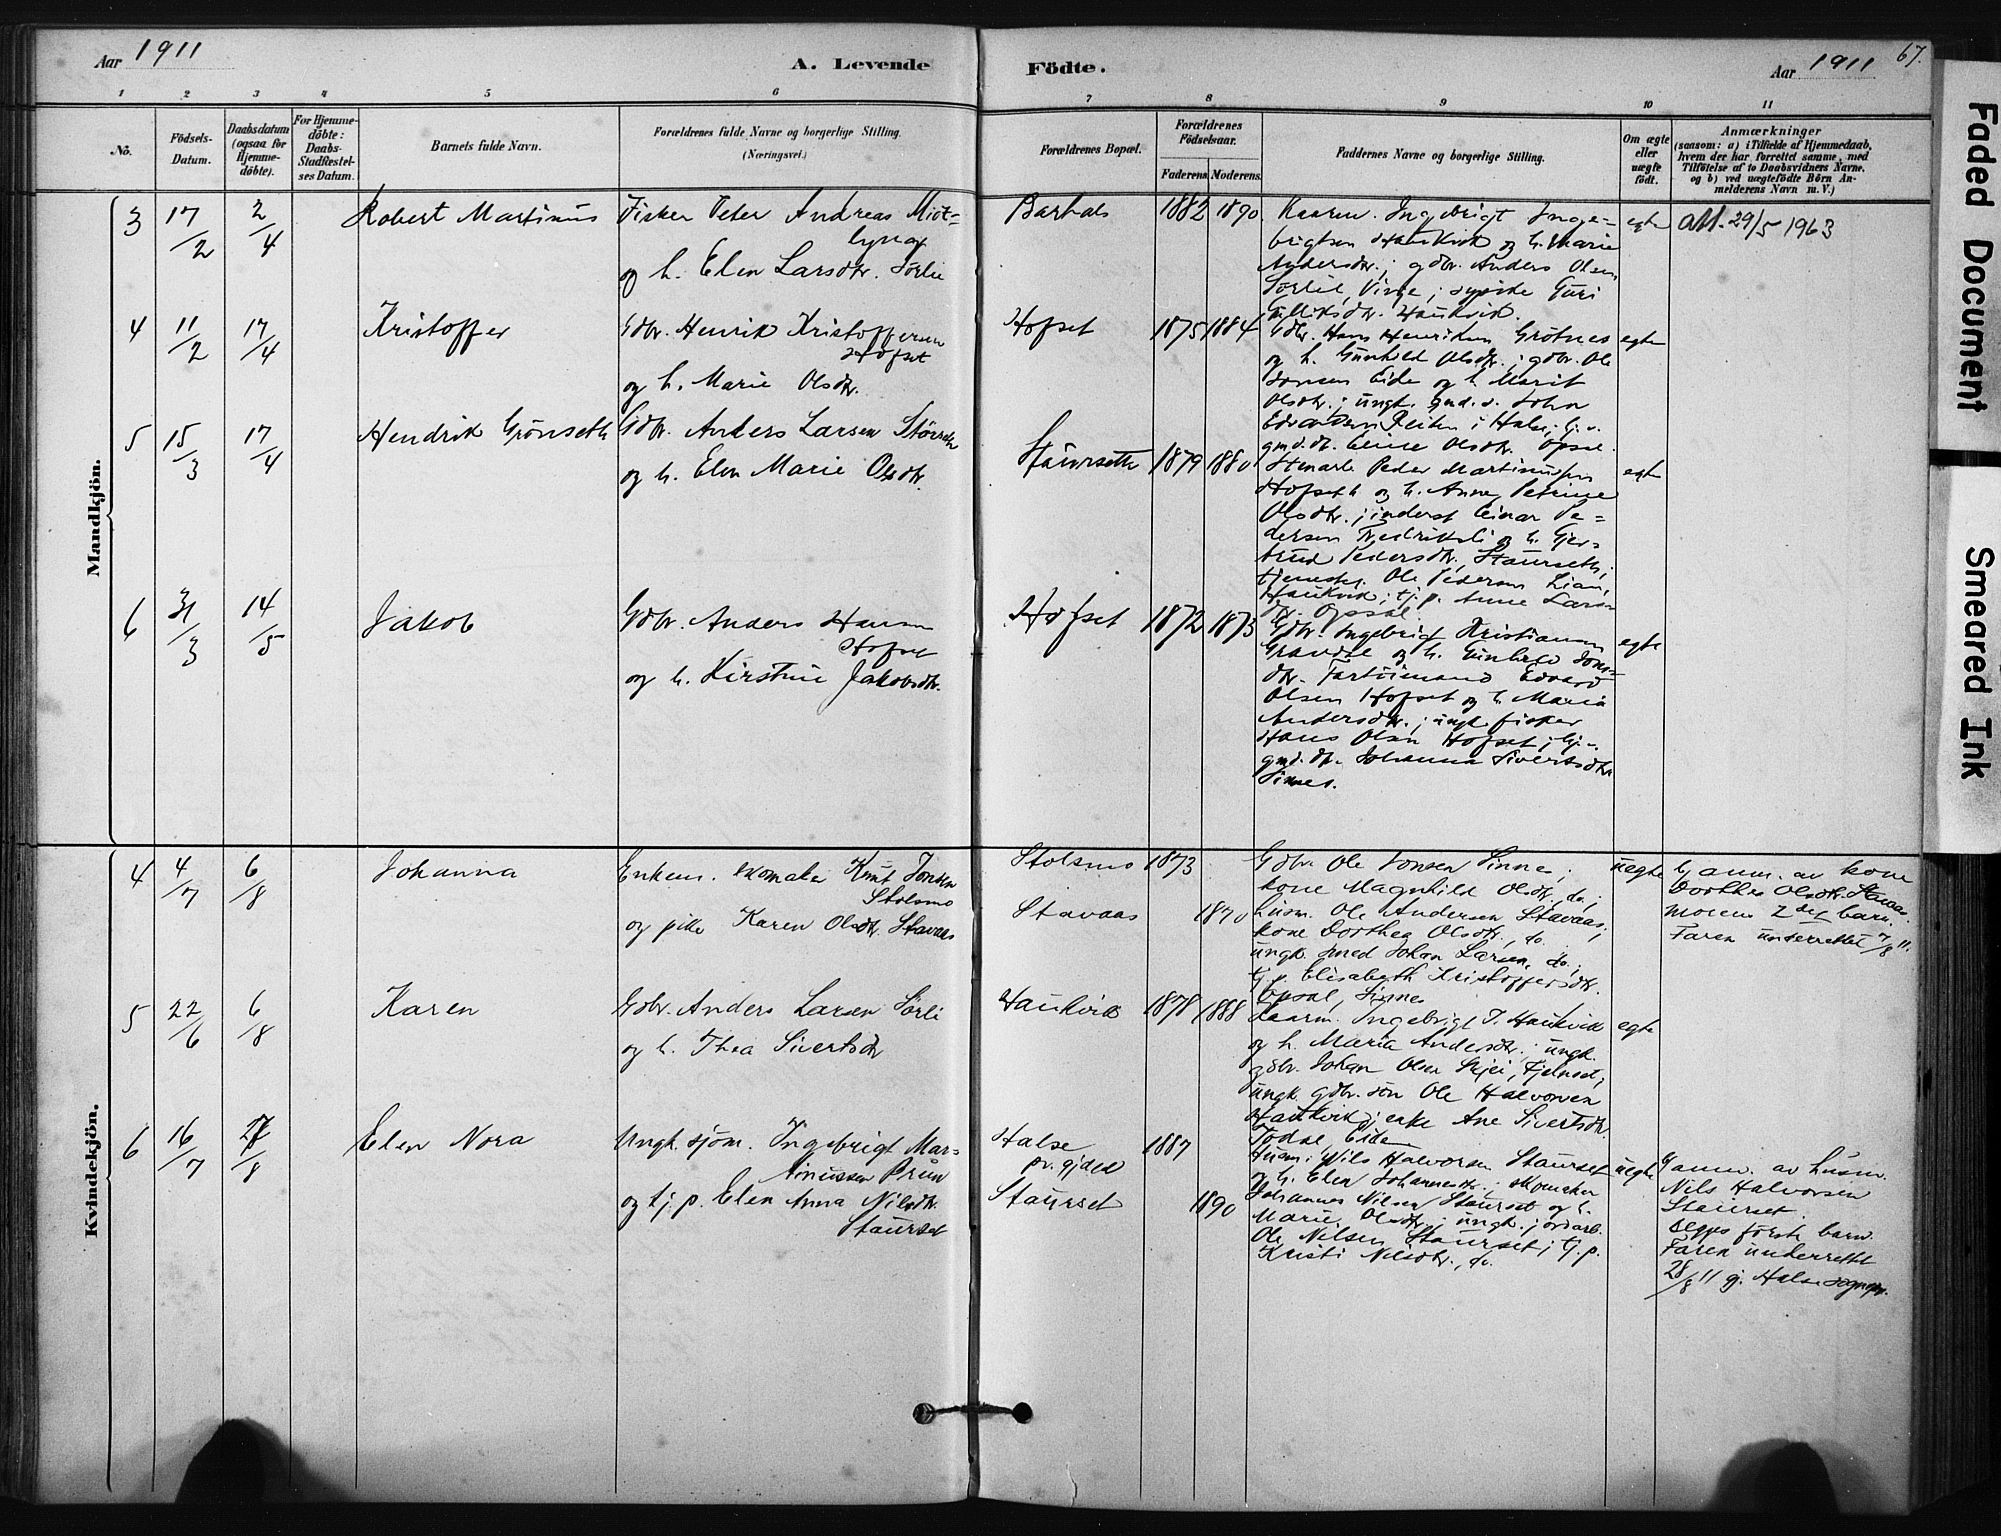 Aar 1911
A. Levende
Födte.
Aar 1911
67.
1 2 3 4 5 6 7 8 9 10 11
No.
Födsels-
Datum.
Daabsdatum
(ogsaa for
Hjemme-
döbte).
For Hjemme-
döbte:
Daabs-
Stadfæstel-
ses Datum.
Barnets fulde Navn.
Forældrenes fulde Navne og borgerlige Stilling.
(Næringsvei.)
Forældrenes Bopæl.
Forældrenes
Födselsaar.
Faderens Moderens
Faddernes Navne og borgerlige Stilling.
Om ægte
eller
uægte
födt.
Anmærkninger
(saasom: a) i Tilfælde af Hjemmedaab,
hvem der har forrettet samme, med
Tilföielse af to Daabsvidners Navne,
og b) ved uægtefödte Börn An-
melderens Navn m. V.)
Mandkjön.
3 17/2 2/4 Robert Martinus
Fisker Peter Andreas
og h. Elen Larsdtr. Sørlie
1882 1890
Ingebrigt Inge=
brigtsen Haukvik og h. Marie
Andersdtr.; gdbr. Anders Olsen
Sørlie, Vinje; Guri
Haukvik.
egte
att. 29/5 1963
4 11/2 17/4 Kristoffer
Gdbr. Henrik Kristoffersen
Hofset
og h. Marie Olsdtr.
Hofset 1875 1884
Gdbr. Hans Henriksen Grøtnes
og h. Gunhild Olsdtr.; gdbr. Ole
Jonsen Eide og h. Marit
Olsdtr.; ungk. gmd. s. John
i Halse;
gmd. dt. Olsdtr. Opsal.
egte
5 15/3 17/4 Hendrik Grønseth
Gdbr. Anders Larsen
og h. Elen Marie Olsdtr.
Staurseth 1879 1880
Peder Martinussen
Hofseth og h. Anne Petrine
Olsdtr.; inderst Einar Pe=
dersen Fredriksli og h. Gjer=
trud Pedersdtr., Staurseth;
Ole Pedersen Lian,
Haukvik; tj. p. Anne Lars=
dtr. Opsal.
egte
6 31/3 14/5 Jakob
Gdbr. Anders Hansen
Hofset
og h. Kirstine Jakobsdtr.
Hofset 1872 1873
Gdbr. Ingebrigt Kristiansen
og h. Gunhild Jons=
dtr. Edvard
Olsen Hofset og h. Maria
Andersdtr.; ungk. fisker
Hans Olsen Hofset;
gmd. dt. Johanna Sivertsdtr.
Sinnes.
egte
Kvindekjön.
4 4/7 6/8 Johanna
Enkem. skomaker Knut Jonsen
Stolsmo
og pike Karen Olsdtr. Stavaas
Stolsmo 1873
Stavaas 1870
Gdbr. Ole Jonsen Sinnes;
kone Magnhild Olsdtr., do.;
husm. Ole Andersen Stavaas;
kone Dorthea Olsdtr., do.
ungk. smed Johan Larsen, do.;
tj. p. Elisabeth Kristoffersdtr.
Opsal, Sinnes
uegte
anm. av kone
Dorthea Olsdtr. Stavaas.
Morens 2det barn
Faren underrettet 7/8 11.
5 22/6 6/8 Karen
Gdbr. Anders Larsen Sørli
og h. Thea Sivertsdtr.
Haukvik 1878 1888
Ingebrigt I. Haukvik
og h. Maria Andersdtr.; ungk.
gdbr. Johan Olsen Skjei,
ungk. gdbr. søn Ole Halvorsen
Haukvik; enke Ane Sivertsdtr.
egte
6 16/7 27/8 Elen Nora
Ungk. sjøm. Ingebrigt Mar=
tinussen Brun
og tj. p. Elen Anna Nilsdtr.
Staurset
Halse
pr.gjeld 1887
Staurset 1890
Husm. Nils Halvorsen Staurset
og h. Elen Johannesdtr.; skomaker
Johannes Nilsen Staurset og h.
Marie Olsdtr.; ungk. jordarb.
Ole Nilsen Staurset; tj. p.
Kristi Nilsdtr., do.
uegte
anm. av husm.
Nils Halvorsen
Staurset.
Begges første barn.
Faren underrettet
28/8 11 gj. Halse sognepr.
Faded Document
Smeared Ink